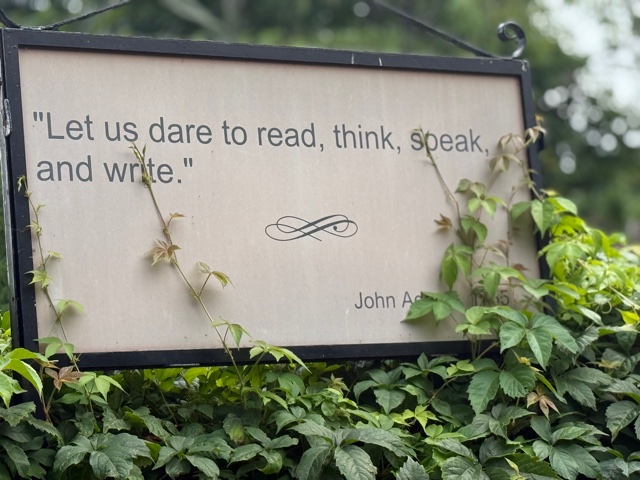 "Let us dare to read, think, speak,
and write."
John